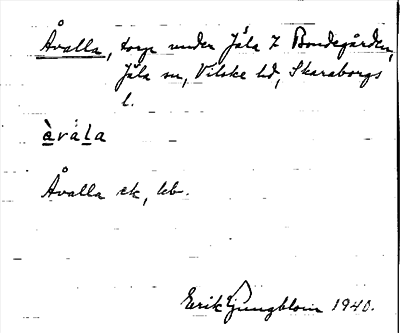 Åvalla, torp under Jäla 7 Bondegården,
Jäla sn, Vilske hd, Skaraborgs
l.
àvála
Åvalla ek, kb.
Erik Ljungblom 1940.